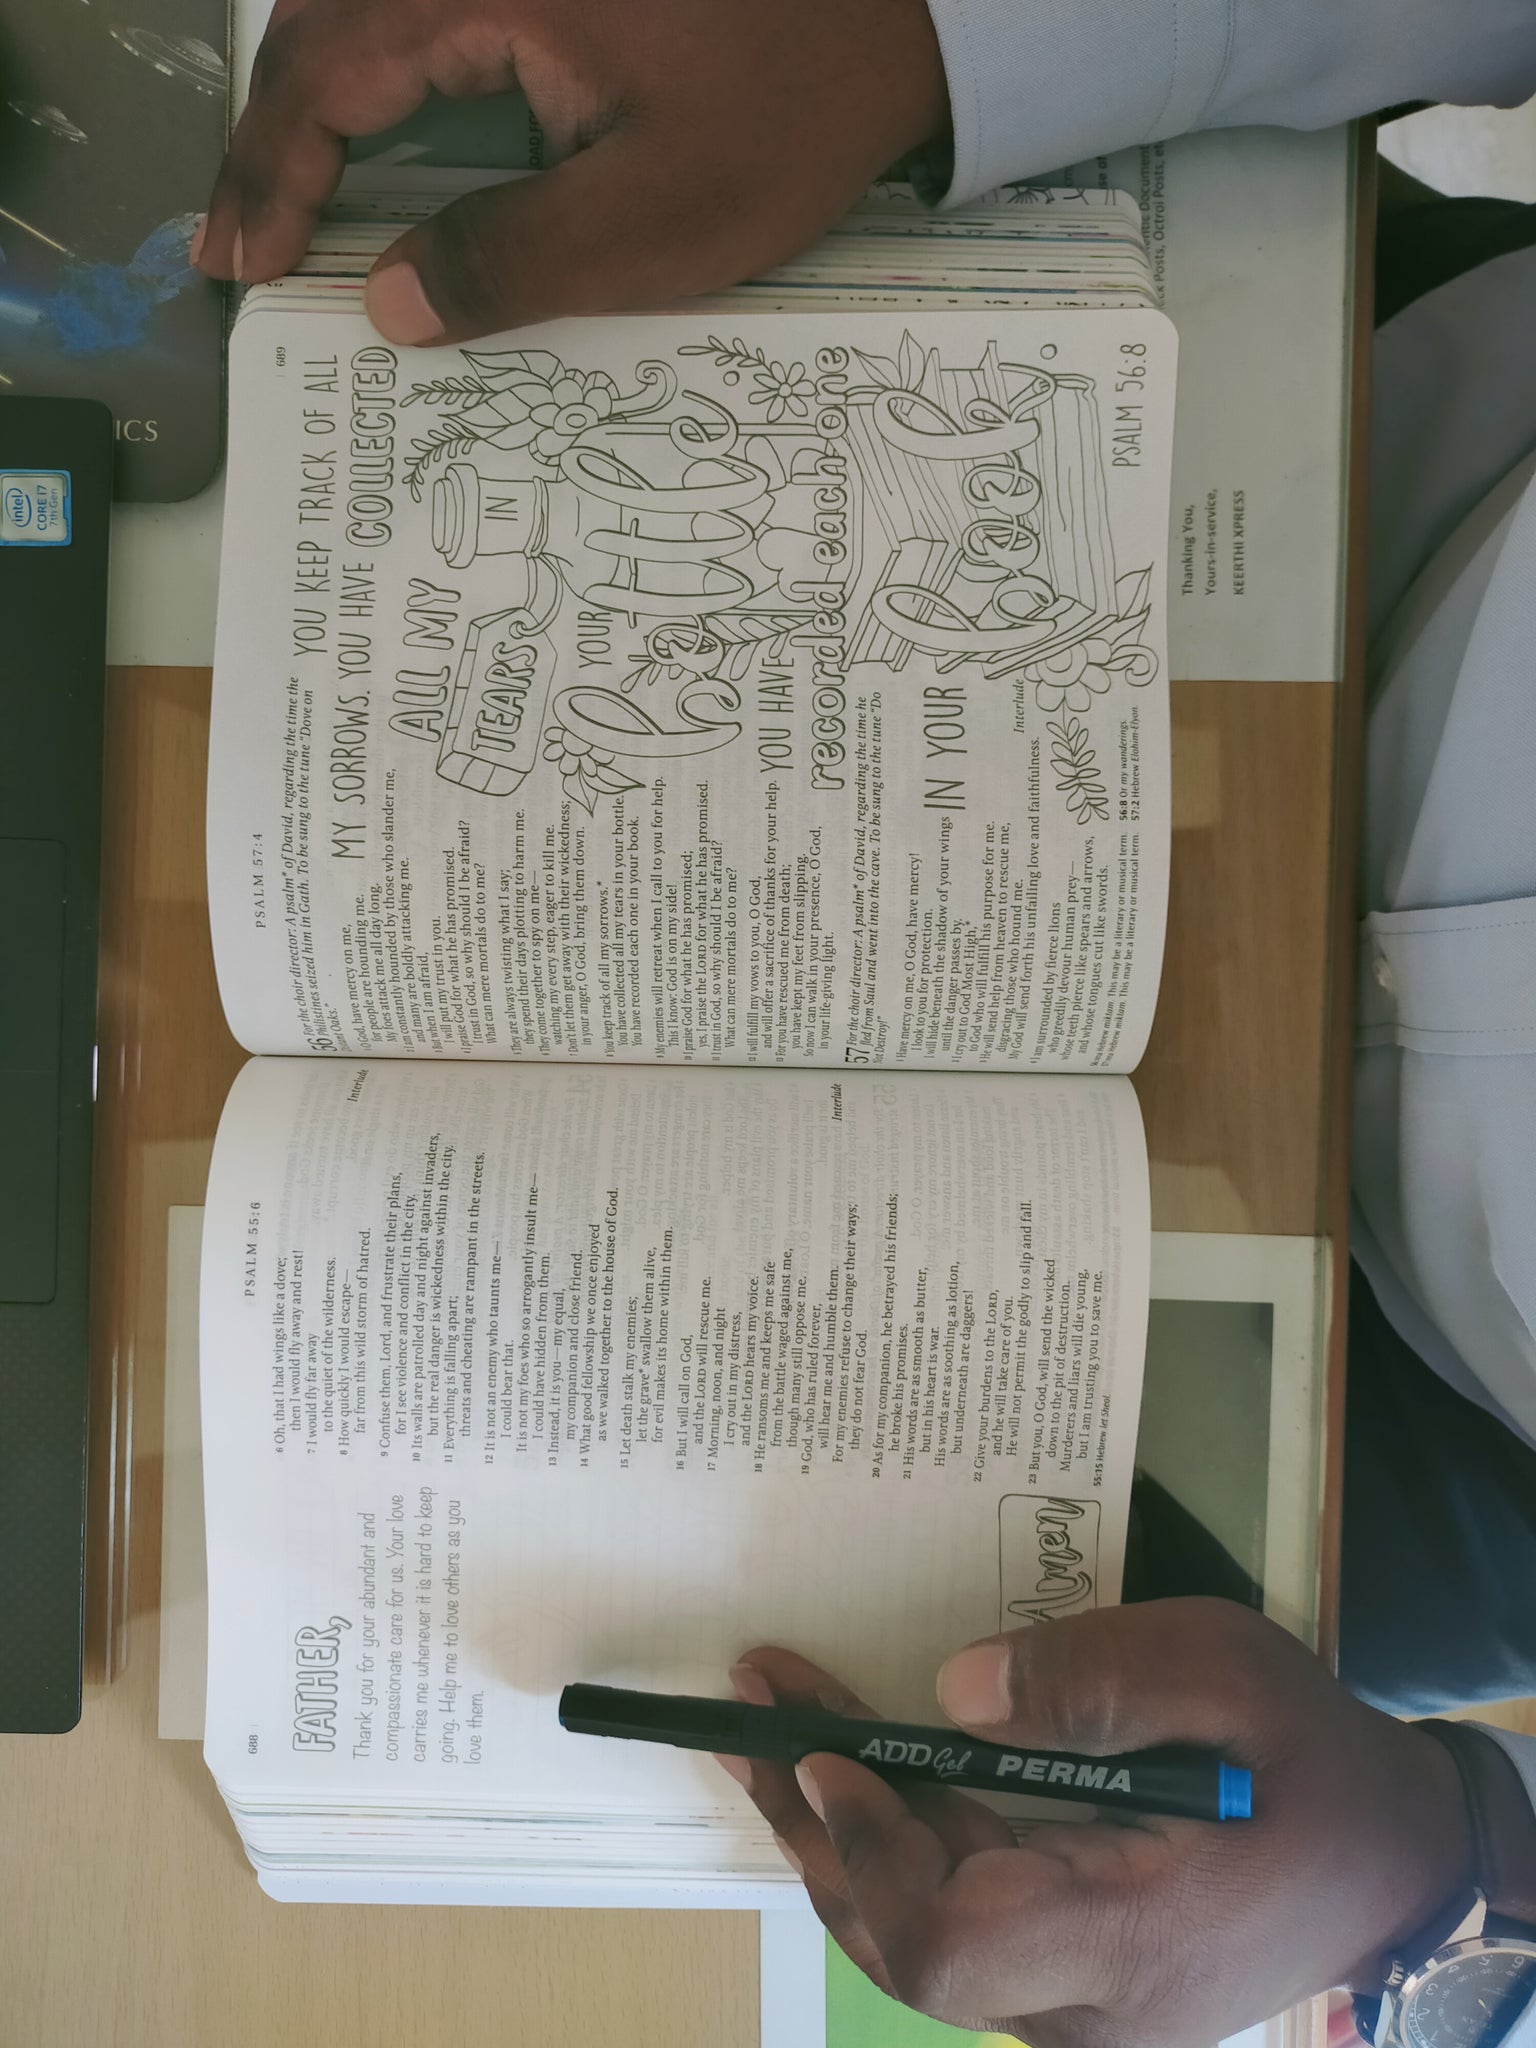 688
PSALM 55:6
FATHER,
Thank you for your abundant and
compassionate care for us. Your love
carries me whenever it is hard to keep
going. Help me to love others as you
love them.
Amen
6 Oh, that I had wings like a dove;
then I would fly away and rest!
7 I would fly far away
to the quiet of the wilderness.
Interlude
8 How quickly I would escape—
far from this wild storm of hatred.
9 Confuse them, Lord, and frustrate their plans,
for I see violence and conflict in the city.
10 Its walls are patrolled day and night against invaders,
but the real danger is wickedness within the city.
11 Everything is falling apart;
threats and cheating are rampant in the streets.
12 It is not an enemy who taunts me—
I could bear that.
It is not my foes who so arrogantly insult me—
I could have hidden from them.
13 Instead, it is you—my equal,
my companion and close friend.
14 What good fellowship we once enjoyed
as we walked together to the house of God.
15 Let death stalk my enemies;
let the grave* swallow them alive,
for evil makes its home within them.
16 But I will call on God,
and the LORD will rescue me.
17 Morning, noon, and night
I cry out in my distress,
and the LORD hears my voice.
18 He ransoms me and keeps me safe
from the battle waged against me,
though many still oppose me.
19 God, who has ruled forever,
will hear me and humble them.
Interlude
For my enemies refuse to change their ways;
they do not fear God.
20 As for my companion, he betrayed his friends;
he broke his promises.
21 His words are as smooth as butter,
but in his heart is war.
His words are as soothing as lotion,
but underneath are daggers!
22 Give your burdens to the LORD,
and he will take care of you.
He will not permit the godly to slip and fall.
23 But you, O God, will send the wicked
down to the pit of destruction.
Murderers and liars will die young,
but I am trusting you to save me.
55:15 Hebrew let Sheol.
PSALM 57:4
689
56 For the choir director: A psalm* of David, regarding the time the
Philistines seized him in Gath. To be sung to the tune "Dove on
Distant Oaks."
1 O God, have mercy on me,
for people are hounding me.
My foes attack me all day long.
2 I am constantly hounded by those who slander me,
and many are boldly attacking me.
3 But when I am afraid,
I will put my trust in you.
4 I praise God for what he has promised.
I trust in God, so why should I be afraid?
What can mere mortals do to me?
5 They are always twisting what I say;
they spend their days plotting to harm me.
6 They come together to spy on me—
watching my every step, eager to kill me.
7 Don't let them get away with their wickedness;
in your anger, O God, bring them down.
8 You keep track of all my sorrows.*
You have collected all my tears in your bottle.
You have recorded each one in your book.
9 My enemies will retreat when I call to you for help.
This I know: God is on my side!
10 I praise God for what he has promised;
yes, I praise the LORD for what he has promised.
11 I trust in God, so why should I be afraid?
What can mere mortals do to me?
12 I will fulfill my vows to you, O God,
and will offer a sacrifice of thanks for your help.
13 For you have rescued me from death;
you have kept my feet from slipping.
So now I can walk in your presence, O God,
in your life-giving light.
57 For the choir director: A psalm* of David, regarding the time he
fled from Saul and went into the cave. To be sung to the tune "Do
Not Destroy!"
1 Have mercy on me, O God, have mercy!
I look to you for protection.
I will hide beneath the shadow of your wings
until the danger passes by.
2 I cry out to God Most High,*
to God who will fulfill his purpose for me.
3 He will send help from heaven to rescue me,
disgracing those who hound me.
Interlude
My God will send forth his unfailing love and faithfulness.
4 I am surrounded by fierce lions
who greedily devour human prey—
whose teeth pierce like spears and arrows,
and whose tongues cut like swords.
56:TITLE Hebrew miktam. This may be a literary or musical term.
56:8 Or my wanderings.
57:TITLE Hebrew miktam. This may be a literary or musical term.
57:2 Hebrew Elohim-Elyon.
YOU KEEP TRACK OF ALL
MY SORROWS. YOU HAVE COLLECTED
ALL MY
TEARS
IN
YOUR
bottle
YOU HAVE
recorded each one
IN YOUR
book.
PSALM 56:8
ADD Gel PERMA
intel
CORE i7
7th Gen
ICS
Thanking You,
Yours-in-service,
KEERTHI XPRESS
Document
ck Posts, Octroi Posts, et